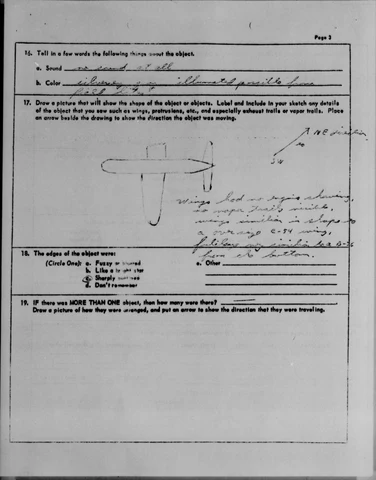 Page 3
16. Tell in a few words the following things about the object.
a. Sound no sound at all
b. Color silvery gray illuminated possible from
17. Draw a picture that will show the shape of the object or objects. Label and include in your sketch any details
of the object that you saw such as wings, protrusions, etc., and especially exhaust trails or vapor trails. Place
an arrow beside the drawing to show the direction the object was moving.
NE direction
to
SW
Wings had no engines showing,
no vapor trails visible,
wings similar in shape to
a average C-54 wing,
similar to a
from the bottom.
18. The edges of the object were:
(Circle One): a. Fuzzy or blurred
b. Like a bright star
c. Sharply outlined
d. Don't remember
e. Other
19. IF there was MORE THAN ONE object, then how many were there?
Draw a picture of how they were arranged, and put an arrow to show the direction that they were traveling.